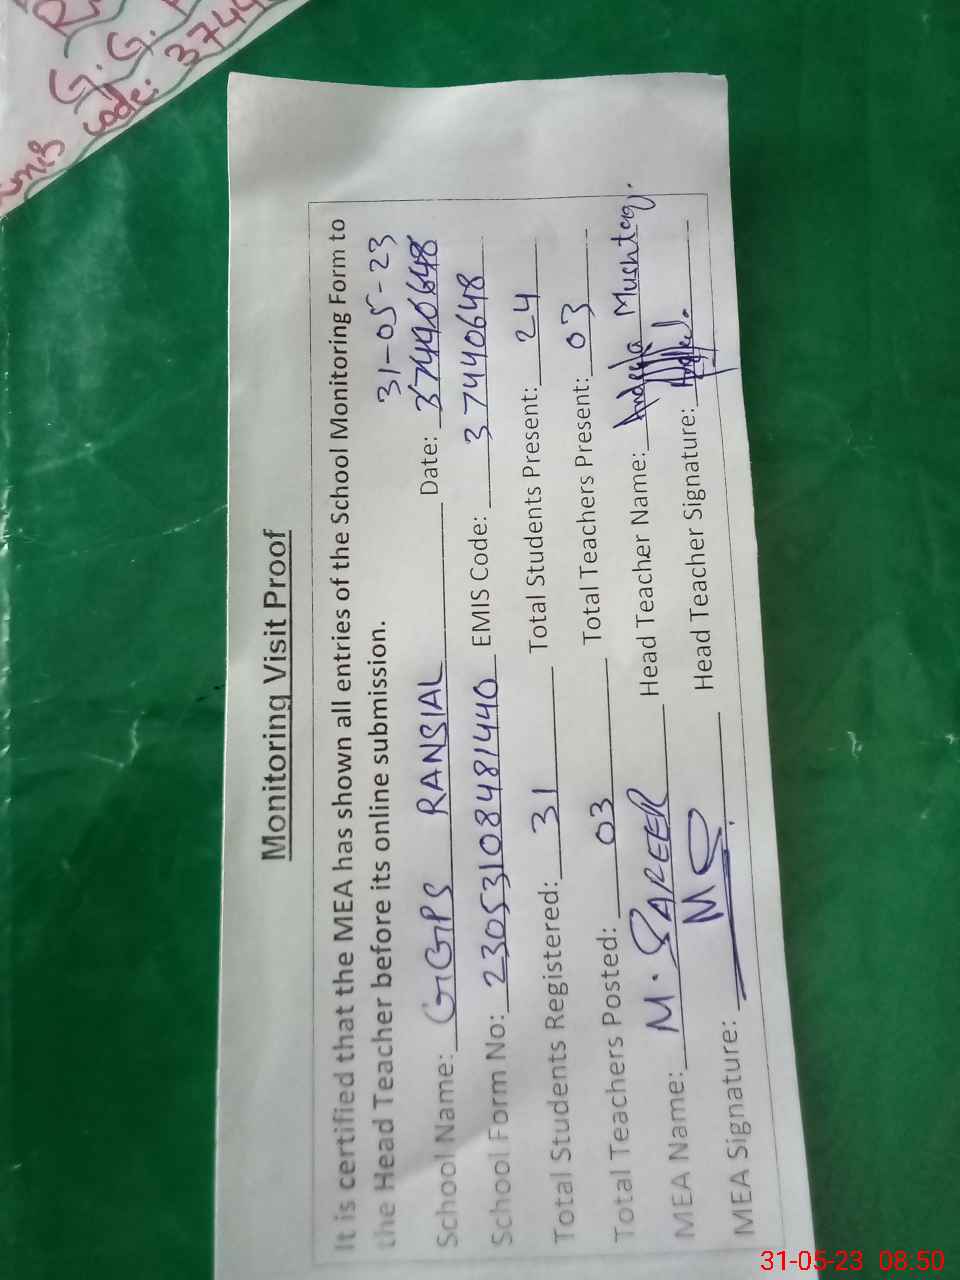 Monitoring Visit Proof
It is certified that the MEA has shown all entries of the School Monitoring Form to
the Head Teacher before its online submission.
31-05-23
School Name: GGPS RANSIAL Date: 37440648
School Form No: 23053108481440 EMIS Code: 37440648
Total Students Registered: 31 Total Students Present: 24
Total Teachers Posted: 03 Total Teachers Present: 03
MEA Name: M. SAREER Head Teacher Name: Andeela Mushtaq.
MEA Signature: MQ Head Teacher Signature:
G.G.
code: 3744
31-05-23 08:50